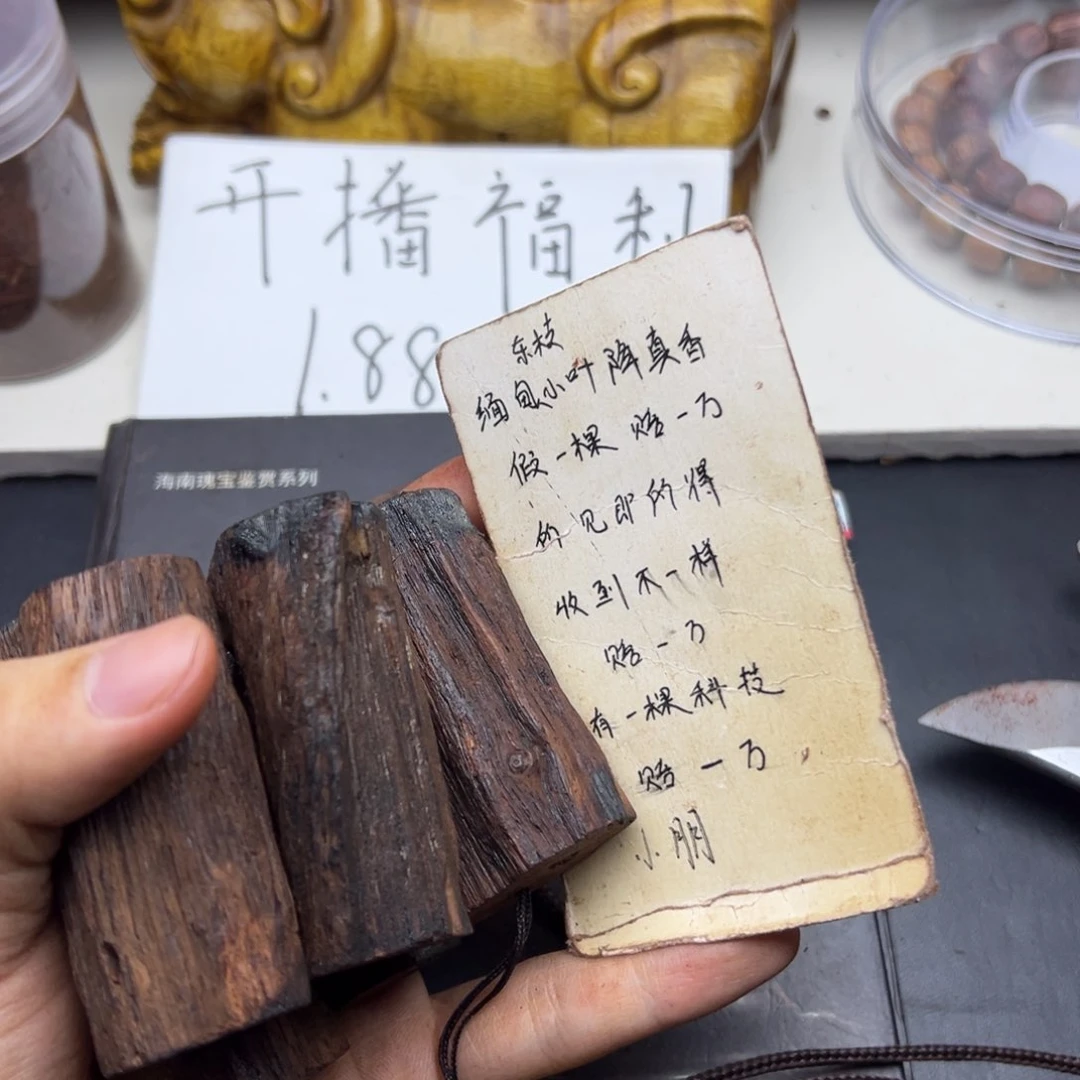 开播福利
1.88
海南瑰宝鉴赏系列
东枝
缅甸小叶降真香
假一棵赔一万
的见即的得
收到不一样
赔一万
有一棵科技
赔一万
小朋